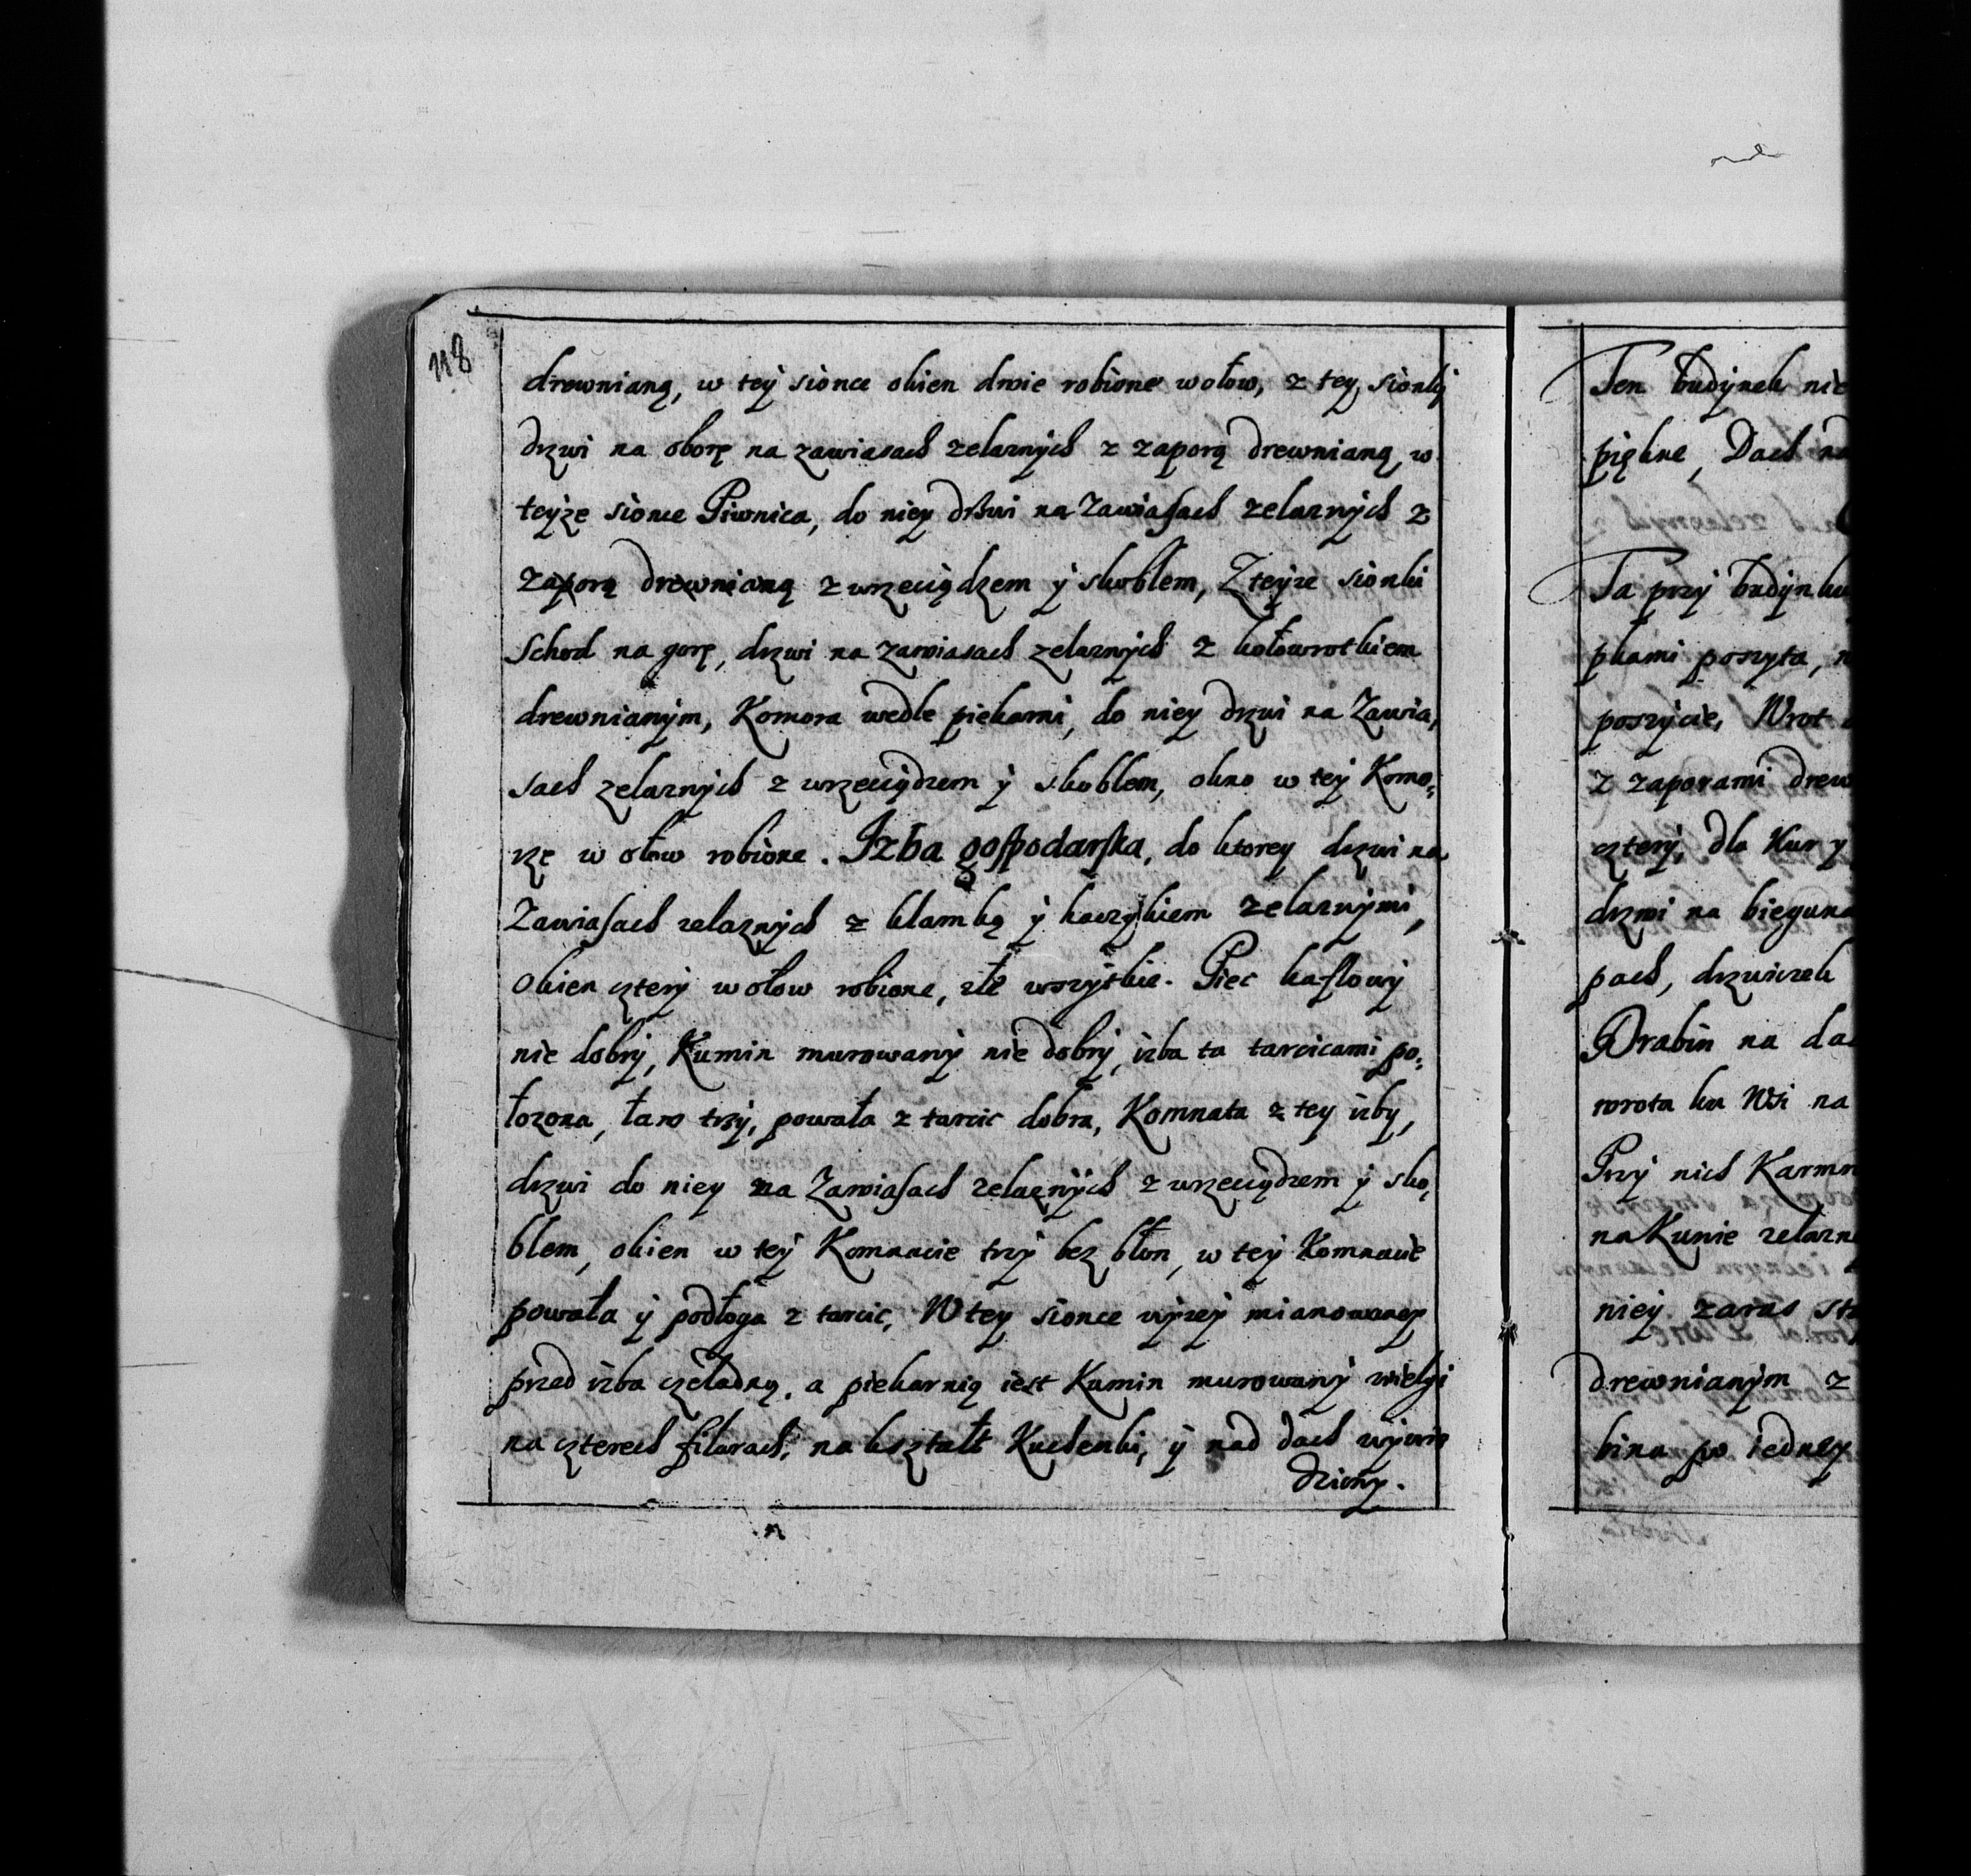 118
drewnianą, w tey sionce okien dwie robione wołow, z tey sionky
drzwi na oborę na zawiasach zelaznych z zaporą drewnianą, w
teyze sionce Piwnica, do niey drzwi na Zawiasach zelaznych z
zaporą drewnianą z wrzeciądzem y skoblem, Z teyze sionki
Schod na gorę, drzwi na zawiasach zelaznych z kołowrotkiem
drewnianym, Komora wedle piekarni, do niey drzwi na Zawia,
sach zelaznych z wrzeciądzem y skoblem, okno w tey Komo,
rzę w ołow robione. Izba gospodarska, do ktorey drzwi na
Zawiasach zelaznych z klamką y haczykiem zelaznymi,
Okien cztery wołow robione, złe wszytkie. Piec kaflowy
nie dobry, Kumin murowany nie dobry, izba ta tarcicami po,
łozona, ław trzy, powała z tarcic dobra, Komnata z tey izby,
drzwi do niey na Zawiasach zelaznych z wrzeciądzem y sko,
blem, okien w tey Komnacie trzy bez błon, w tey Komnacie
powała y podłoga z tarcic, W tey sionce wyzey mianowaney
przed izba czeladną, a piekarnią iest Kumin murowany wielgi
na czterech filarach, na kształt Kuchenki, y nad dach wywie
dziony.
Ten budynek nie
piękne, Dach na
Ta przy budynku
pkami poszyta, n
poszycie, Wrot
z zaporami drew
cztery, dla Kur y
drzwi na biegun
pach, drzwiczek
Drabin na da
wrota ku Wsi na
Przy nich Karmn
na Kunie zelazn
niey zaraz sta
drewnianym z
bina po iedney